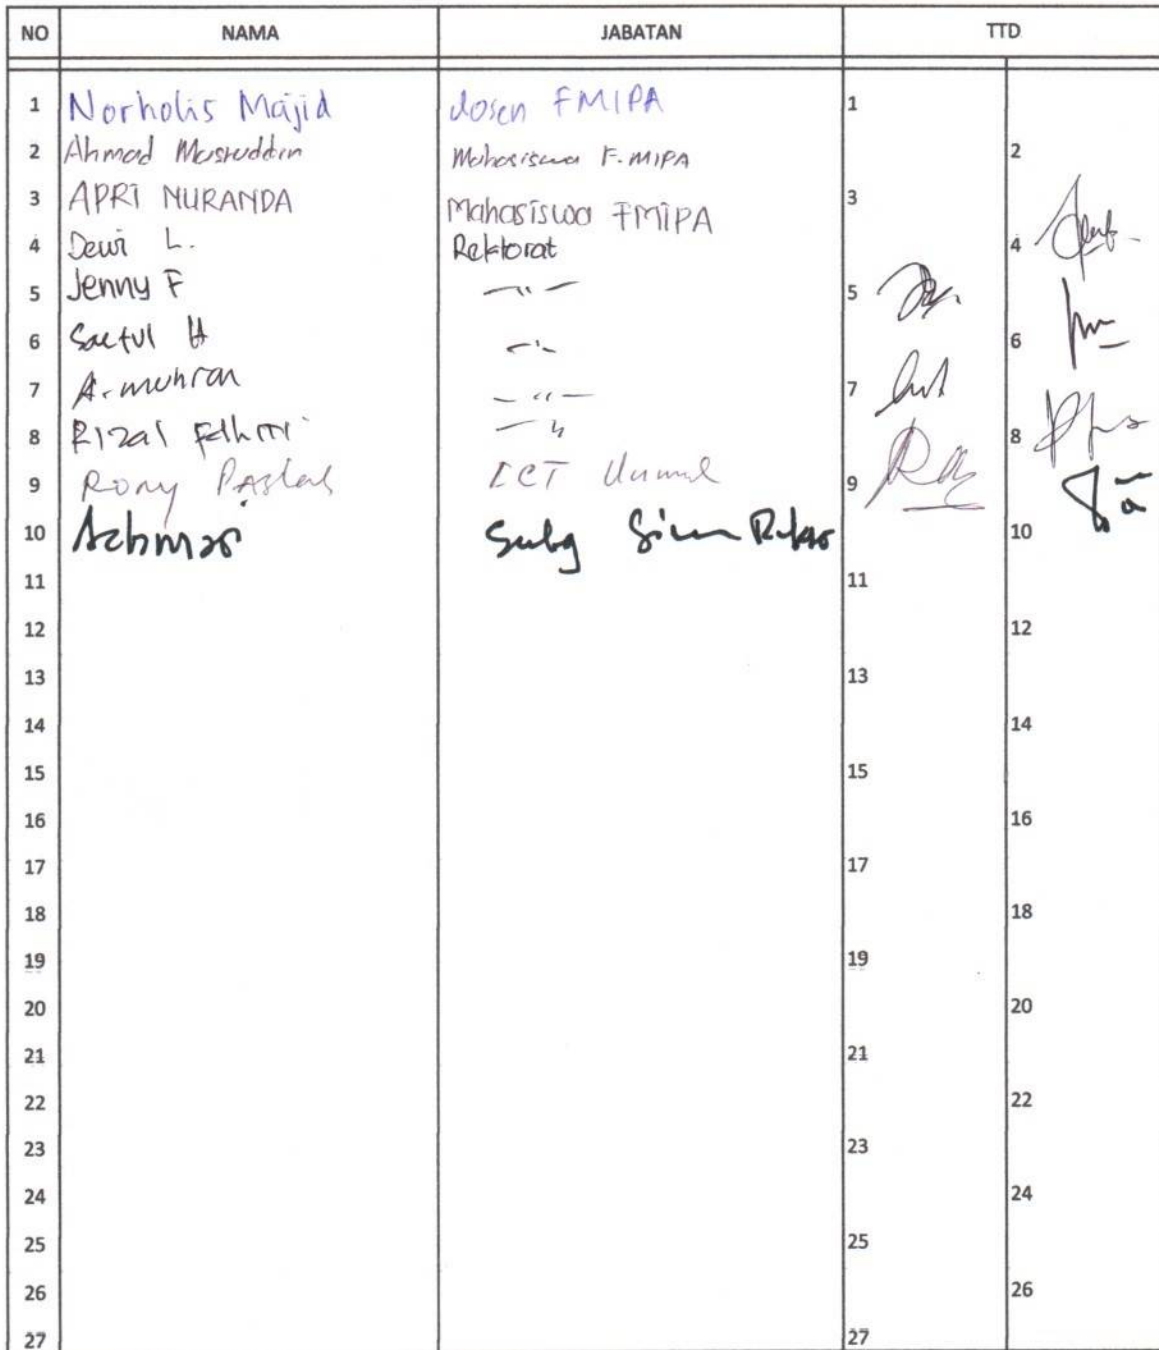 NO NAMA JABATAN TTD
1 Norholis Majid dosen FMIPA 1
2 Ahmad Masruddin Mahasiswa F.MIPA 2
3 APRI NURANDA Mahasiswa FMIPA 3
4 Dewi L. Rektorat 4
5 Jenny F — " — 5
6 Saeful H — " — 6
7 A. muhran — " — 7
8 Rizal Fahmi — " 8
9 Rony ICT Unmul 9
10 10
11 11
12 12
13 13
14 14
15 15
16 16
17 17
18 18
19 19
20 20
21 21
22 22
23 23
24 24
25 25
26 26
27 27